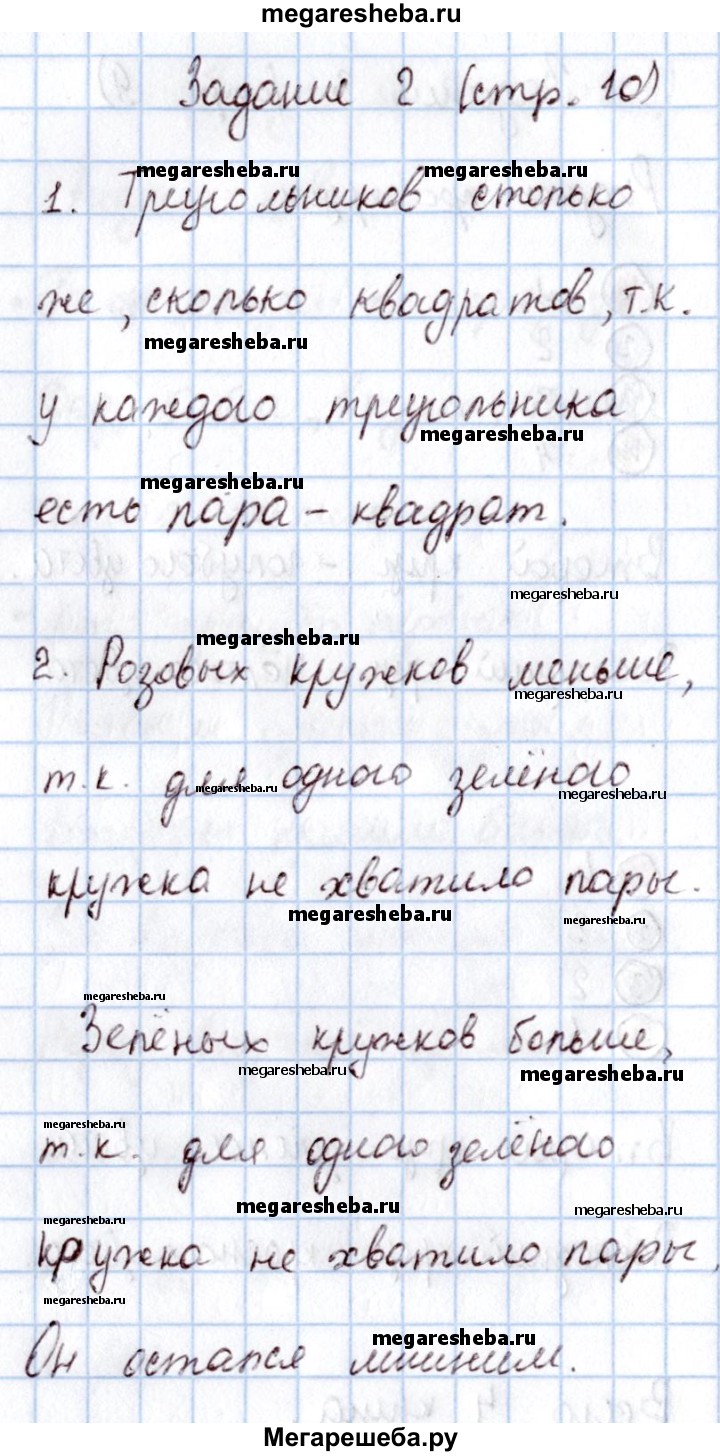 megaresheba.ru
Задание 2 (стр. 10)
megaresheba.ru megaresheba.ru
1. Треугольников столько
же, сколько квадратов, т.к.
megaresheba.ru
у каждого треугольника
megaresheba.ru
megaresheba.ru
есть пара - квадрат.
megaresheba.ru
megaresheba.ru
2. Розовых кружков меньше,
megaresheba.ru
т.к. для одного зелёного
megaresheba.ru megaresheba.ru
кружка не хватило пары.
megaresheba.ru megaresheba.ru
megaresheba.ru
Зелёных кружков больше,
megaresheba.ru megaresheba.ru
megaresheba.ru
т.к. для одного зелёного
megaresheba.ru megaresheba.ru
megaresheba.ru
кружка не хватило пары.
megaresheba.ru
megaresheba.ru
Он остался лишним.
Мегарешеба.ру